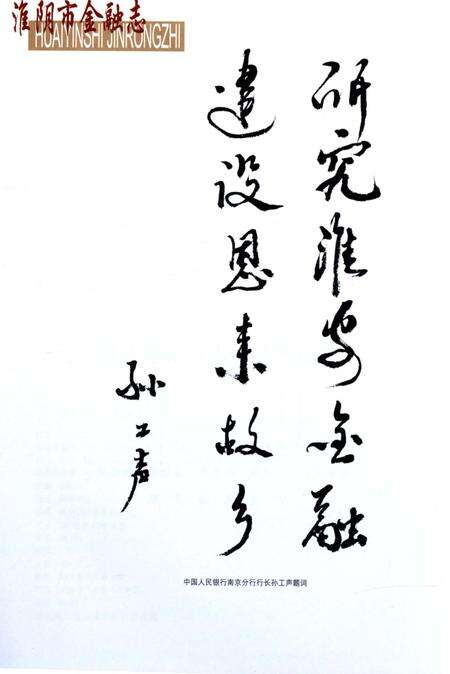 淮阴市金融志
HUAIYINSHI JINRONGZHI
研究淮安金融
建设恩来故乡
孙工声
中国人民银行南京分行行长孙工声题词